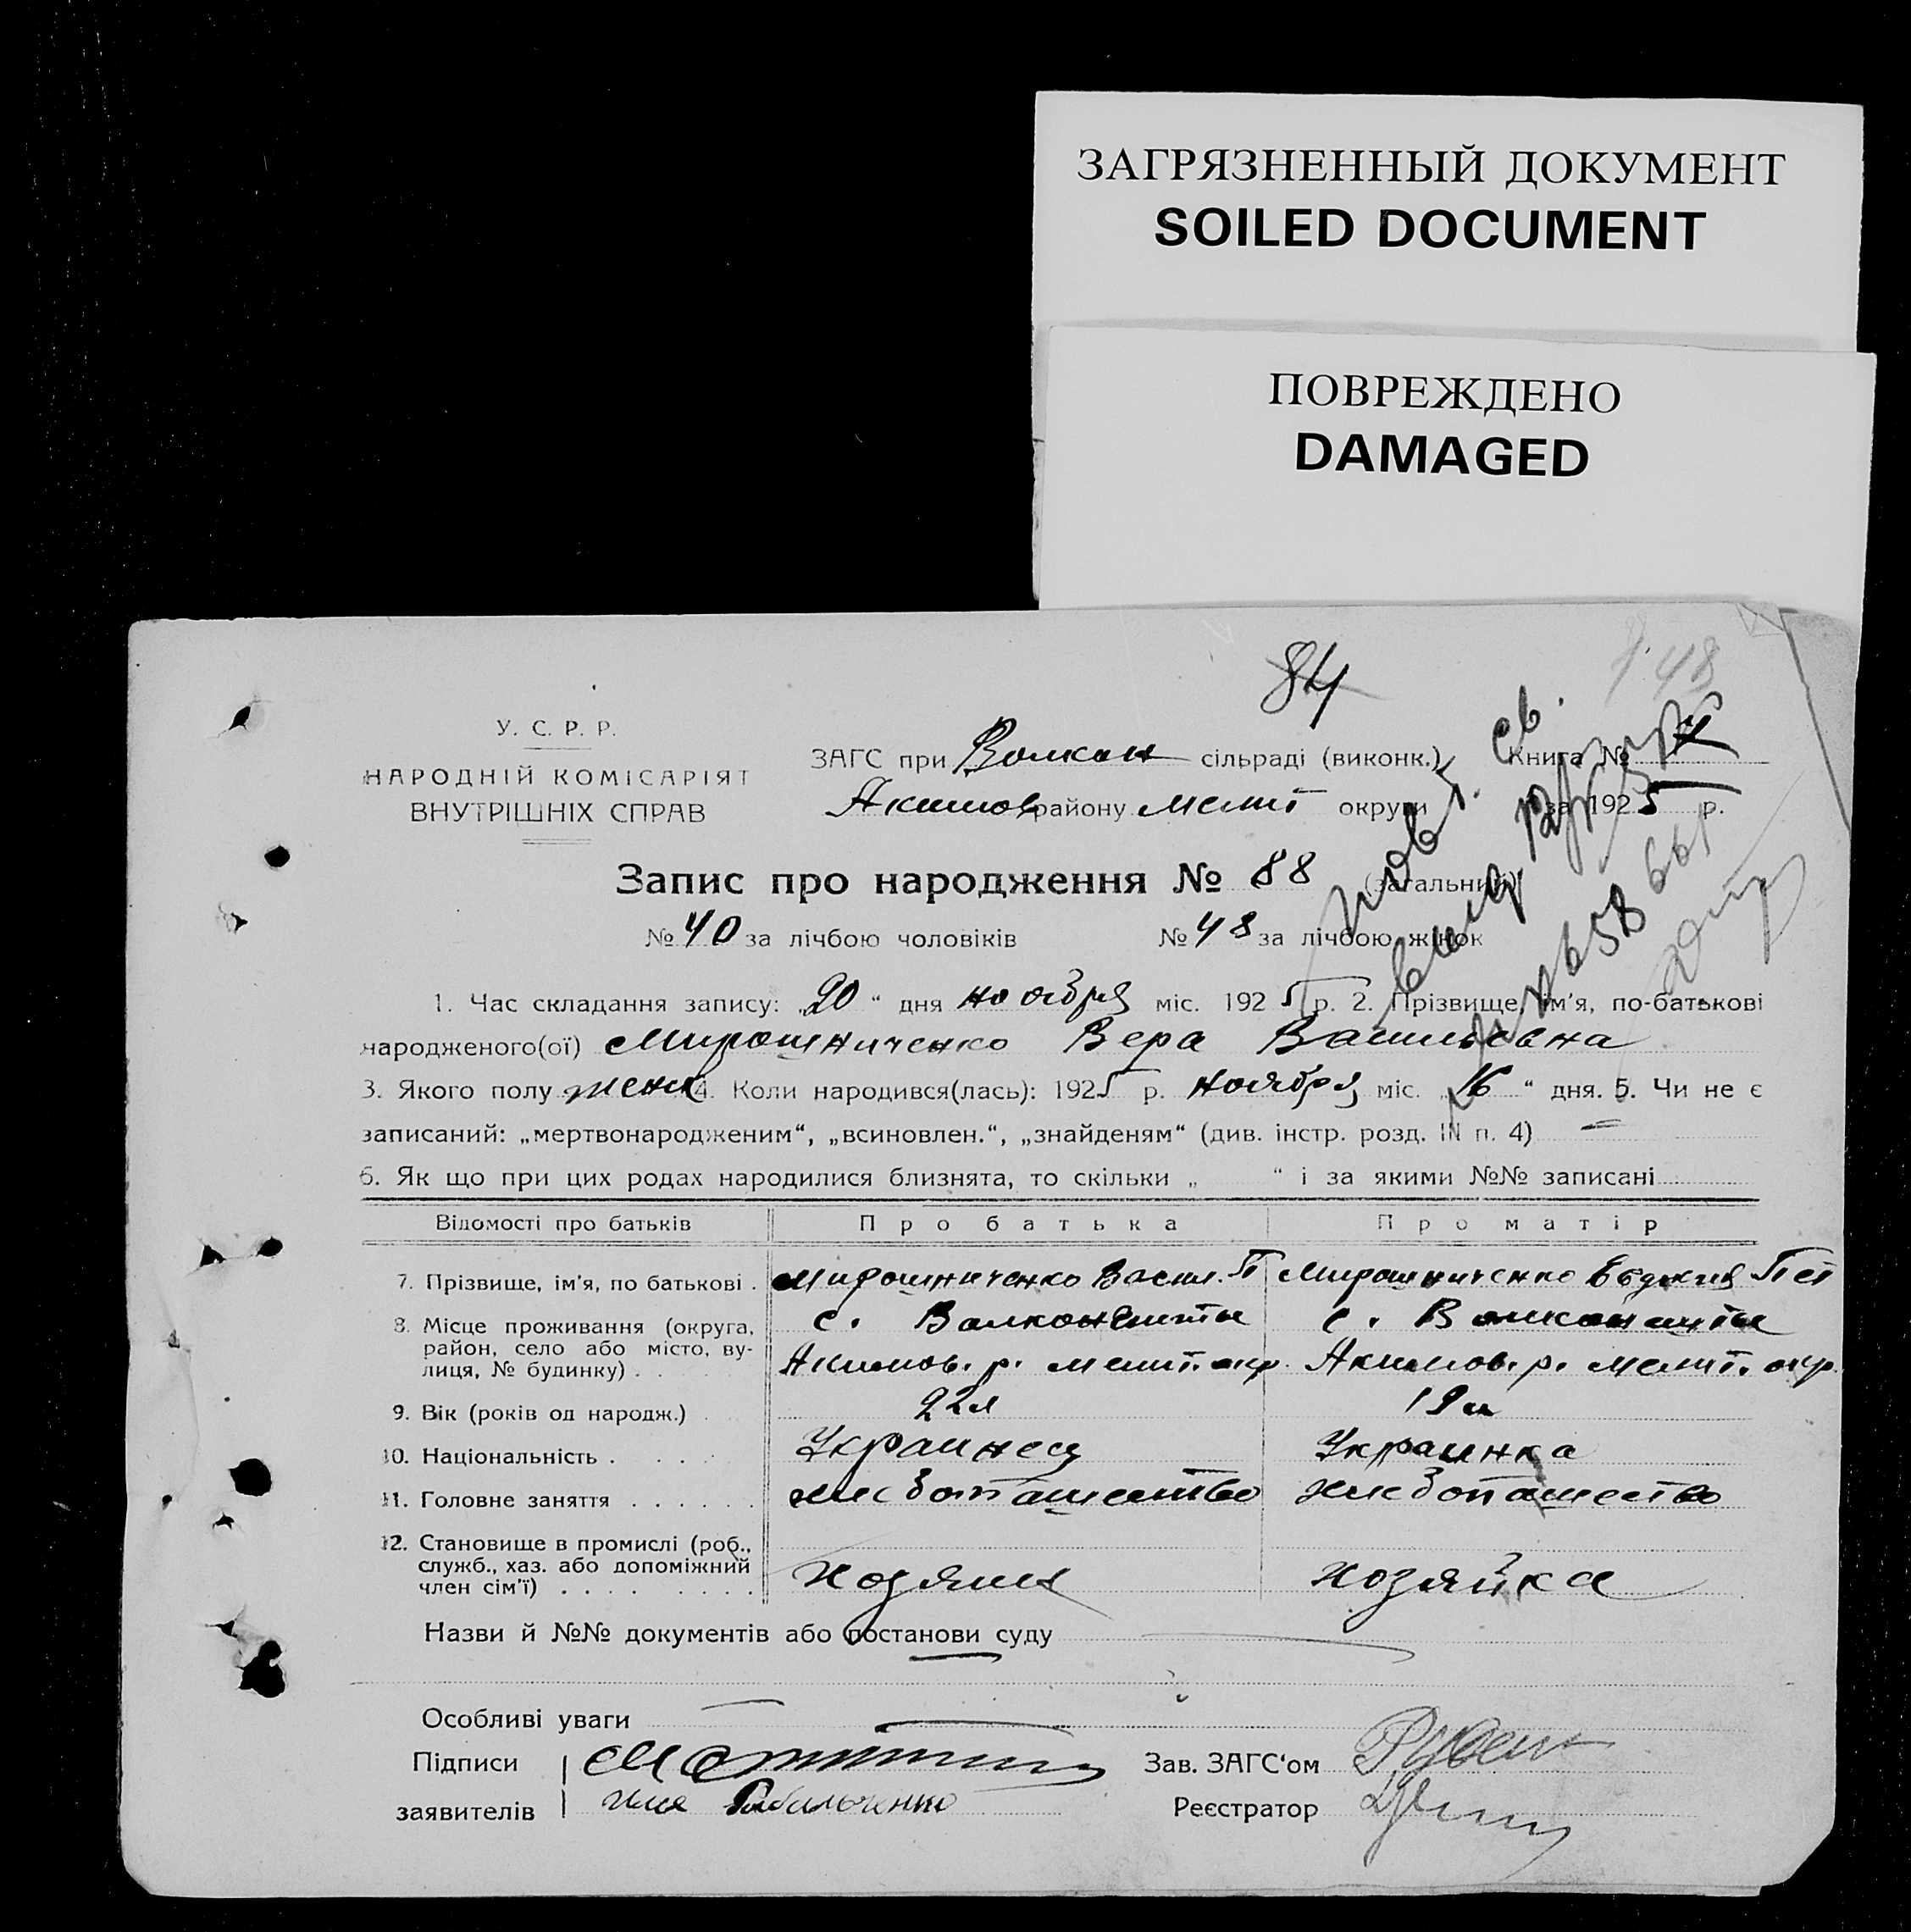 ЗАГРЯЗНЕННЫЙ ДОКУМЕНТ
SOILED DOCUMENT
ПОВРЕЖДЕНО
DAMAGED
84
48
У. С. Р. Р.
НАРОДНІЙ КОМІСАРІЯТ
ВНУТРІШНІХ СПРАВ
ЗАГС при Волкан сільраді (виконк.) Книга №
Акимов району Мелит округи за 1925 р.
Запис про народження № 88 (загальний)
№ 40 за лічбою чоловіків № 48 за лічбою жінок
1. Час складання запису: „20“ дня ноября міс. 1925 р. 2. Прізвище, ім'я, по-батькові
народженого(ої) Мирошниченко Вера Васильевна
3. Якого полу женс 4. Коли народився(лась): 1925 р. Ноября міс. „16“ дня. 5. Чи не є
записаний: „мертвонародженим“, „всиновлен.“, „знайденям“ (див. інстр. розд. IV п. 4) —
6. Як що при цих родах народилися близнята, то скільки „ “ і за якими №№ записані
Відомості про батьків Про батька Про матір
7. Прізвище, ім'я, по батькові . Мирошниченко Васил. П Мирошниченко Евдокия Пет
8. Місце проживання (округа, район, село або місто, вулиця, № будинку) . с. Волконешты с. Волконешты
Акимов. р. Мелит. окр. Акимов. р. Мелит. окр.
9. Вік (років од народж.) . 22л 19л
10. Національність . Украинец Украинка
11. Головне заняття . хлебопашество хлебопашество
12. Становище в промислі (роб., служб., хаз. або допоміжний член сім'ї) . Хозяин Хозяйка
Назви й №№ документів або постанови суду
Особливі уваги
Підписи
заявителів
Зав. ЗАГС'ом
Реєстратор